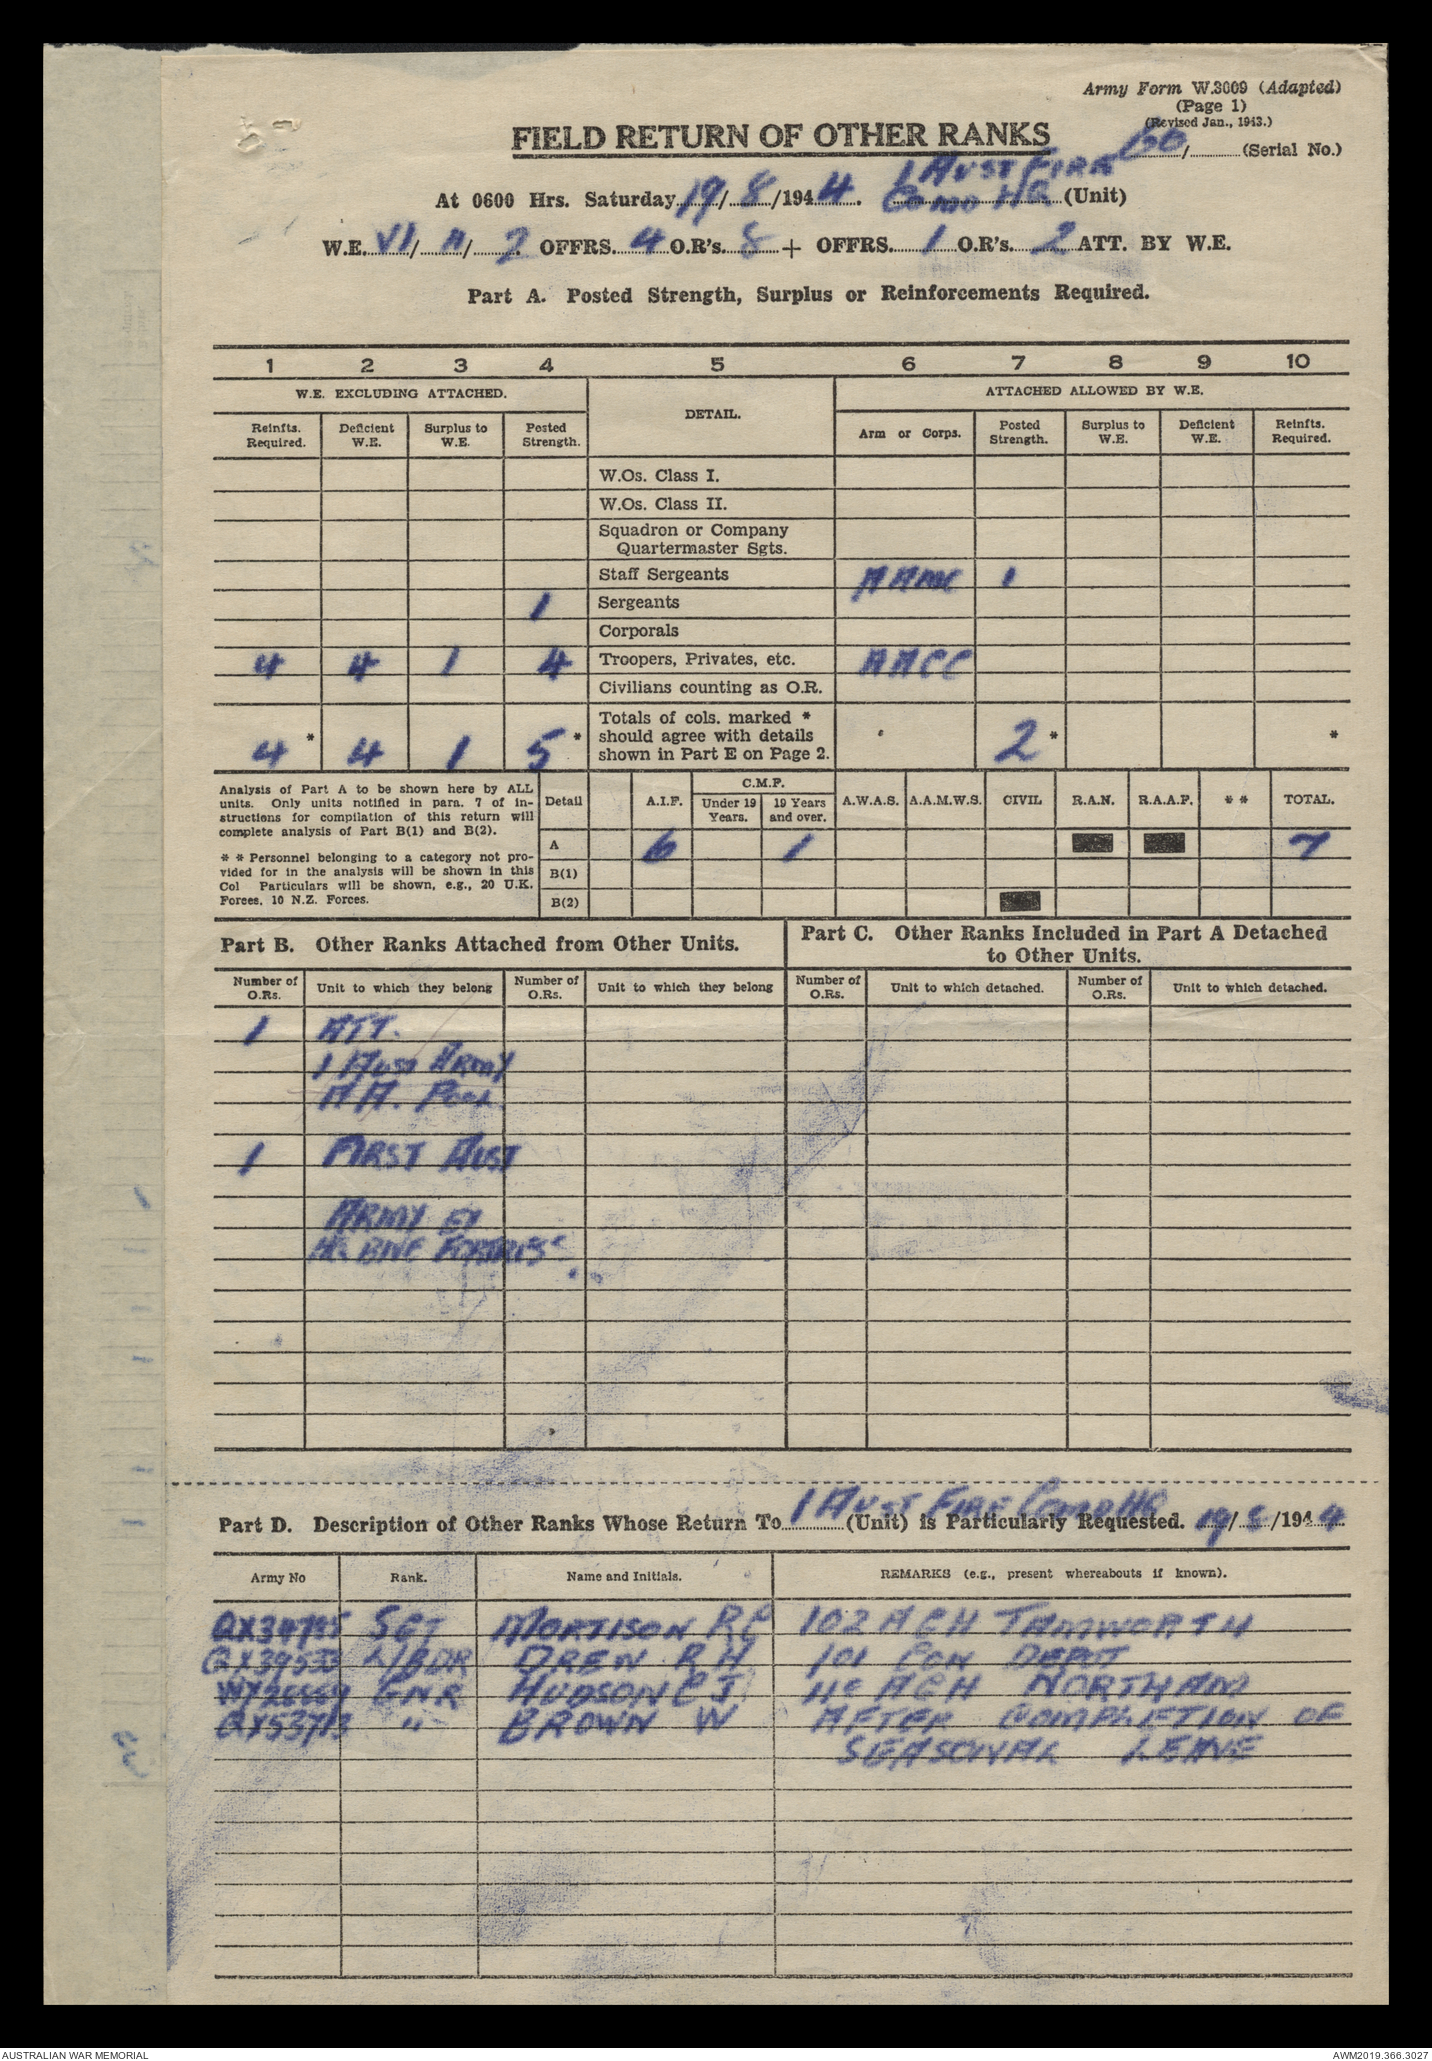 Army Form W.3009 (Adapted)
(Page 1)
(Revised Jan., 1943.)
FIELD RETURN OF OTHER RANKS
60/ (Serial No.)
At 0600 Hrs. Saturday 19/8/1944. 1 AUST FIRE COMD HQ (Unit)
W.E. VI/A/2 OFFRS. 4 O.R's. 8 + OFFRS. 1 O.R's. 2 ATT. BY W.E.
Part A. Posted Strength, Surplus or Reinforcements Required.
1 2 3 4 5 6 7 8 9 10
W.E. EXCLUDING ATTACHED. DETAIL. ATTACHED ALLOWED BY W.E.
Reinfts. Required. Deficient W.E. Surplus to W.E. Posted Strength. Arm or Corps. Posted Strength. Surplus to W.E. Deficient W.E. Reinfts. Required.
W.Os. Class I.
W.Os. Class II.
Squadron or Company
Quartermaster Sgts.
Staff Sergeants AAMC 1
1 Sergeants
Corporals
4 4 1 4 Troopers, Privates, etc. AACC
Civilians counting as O.R.
4 * 4 1 5 * Totals of cols. marked * should agree with details shown in Part E on Page 2. 2 * *
Analysis of Part A to be shown here by ALL
units. Only units notified in para. 7 of in-
structions for compilation of this return will
complete analysis of Part B(1) and B(2).
* * Personnel belonging to a category not pro-
vided for in the analysis will be shown in this
Col Particulars will be shown, e.g., 20 U.K.
Forces, 10 N.Z. Forces.
Detail A.I.F. C.M.F. Under 19 Years. 19 Years and over. A.W.A.S. A.A.M.W.S. CIVIL R.A.N. R.A.A.F. * * TOTAL.
A 6 1 7
B(1)
B(2)
Part B. Other Ranks Attached from Other Units.
Part C. Other Ranks Included in Part A Detached
to Other Units.
Number of O.Rs. Unit to which they belong Number of O.Rs. Unit to which they belong Number of O.Rs. Unit to which detached. Number of O.Rs. Unit to which detached.
1 ATT.
1 AUST ARMY
A A. POOL
1 FIRST AUST
ARMY EX
HQ BNE FORTRESS
Part D. Description of Other Ranks Whose Return To 1 AUST FIRE COMD HQ (Unit) is Particularly Requested. 19/8/1944
Army No Rank. Name and Initials. REMARKS (e.g., present whereabouts if known).
SGT MORTISON R C 102 AGH TAMWORTH
QX39533 L/BDR DREW R H 101 CON DEPOT
GNR HUDSON C J AGH NORTHAM
QX53713 " BROWN W AFTER COMPLETION OF
SEASONAL LEAVE
AUSTRALIAN WAR MEMORIAL
AWM2019.366.3027